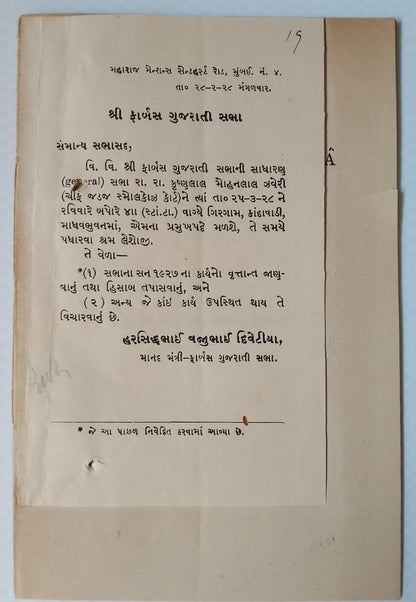 19
મહારાજ મેન્શન્સ સેન્ડહર્સ્ટ રોડ, મુંબઈ. નં. ૪.
તા૦ ૨૮-૨-૨૮ મંગળવાર.
શ્રી ફાર્બસ ગુજરાતી સભા
સંમાન્ય સભાસદ,
વિ. વિ. શ્રી ફાર્બસ ગુજરાતી સભાની સાધારણ
(general) સભા રા. રા. કૃષ્ણલાલ મોહનલાલ ઝવેરી
(ચીફ જડજ સ્મોલકોઝ કોર્ટ)ને ત્યાં તા૦ ૨૫-૩-૨૮ ને
રવિવારે બપોરે ૪ાા (સ્ટાં.ટા.) વાગ્યે ગિરગામ, કાંદાવાડી,
માધવભુવનમાં, એમના પ્રમુખપદે મળશે, તે સમયે
પધારવા શ્રમ લેશોજી.
તે વેળા—
*(૧) સભાના સન ૧૯૨૭ના કાર્યનો વૃત્તાન્ત જાણ-
વાનું તથા હિસાબ તપાસવાનું, અને
(૨) અન્ય જે કાંઇ કાર્ય ઉપસ્થિત થાય તે
વિચારવાનું છે.
હરસિદ્ધભાઈ વજુભાઈ દિવેટીયા,
માનદ મંત્રી-ફાર્બસ ગુજરાતી સભા.
* જે આ પાછળ નિવેદિત કરવામાં આવ્યા છે.
Â